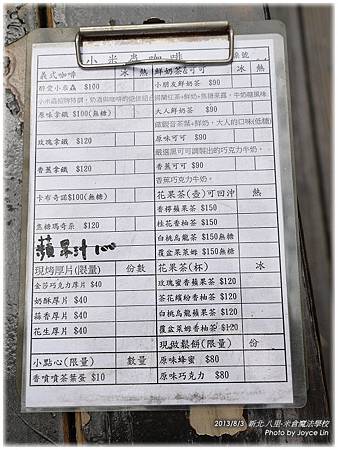 小米蟲咖啡
桌號:
義式咖啡 冰 熱
醉愛小米蟲 $100
原味拿鐵 $100(無糖)
玫瑰拿鐵 $120
香蕉拿鐵 $120
卡布奇諾$100(無糖)
焦糖瑪奇朵 $120
蘋果汁 100
現烤厚片(限量) 份數
金莎巧克力厚片 $40
奶酥厚片 $40
蒜香厚片 $40
花生厚片 $40
小點心(限量) 數量
香噴噴茶葉蛋 $10
鮮奶茶&可可 冰 熱
小朋友鮮奶茶 $90
大人鮮奶茶 $90
鐵觀音茶葉+鮮奶，大人的口味(低糖)
原味可可 $90
嚴選黑可可調製出的巧克力牛奶。
香蕉可可 $90
香蕉巧克力牛奶。
花果茶(壺)可回沖 熱
香檸蘋果茶 $150
桂花香柚茶 $150
白桃烏龍茶 $150無糖
覆盆果茶 $150無糖
花果茶(杯) 冰
玫瑰蜜香蘋果茶 $120
茶花繽紛香柚茶 $120
白桃烏龍蘋果茶 $120
覆盆莱姆香柚茶 $120
現做鬆餅(限量) 份
原味蜂蜜 $80
原味巧克力 $80
2013/8/3 新北.八里-米倉魔法學校
Photo by Joyce Lin